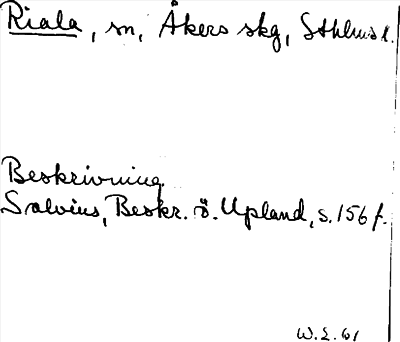 Riala, sn, Åkers skg, Sthlms l.
Beskrivning.
Salvius, Beskr. ö. Upland, s. 156 f.
W.L. 61